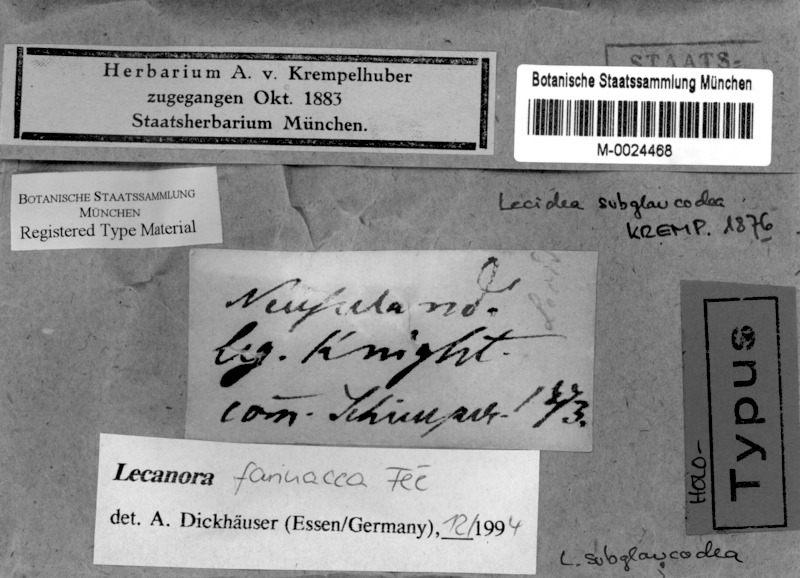 Herbarium A. v. Krempelhuber
zugegangen Okt. 1883
Staatsherbarium München.
STAATS-
Botanische Staatssammlung München
M-0024468
BOTANISCHE STAATSSAMMLUNG
MÜNCHEN
Registered Type Material
Lecidea subglaucodea
KREMP. 1876
Neuseeland.
leg. Knight.
com. Schimper.
Holo-
Typus
Lecanora farinacea Fée
det. A. Dickhäuser (Essen/Germany), 12/1994
L. subglaucodea